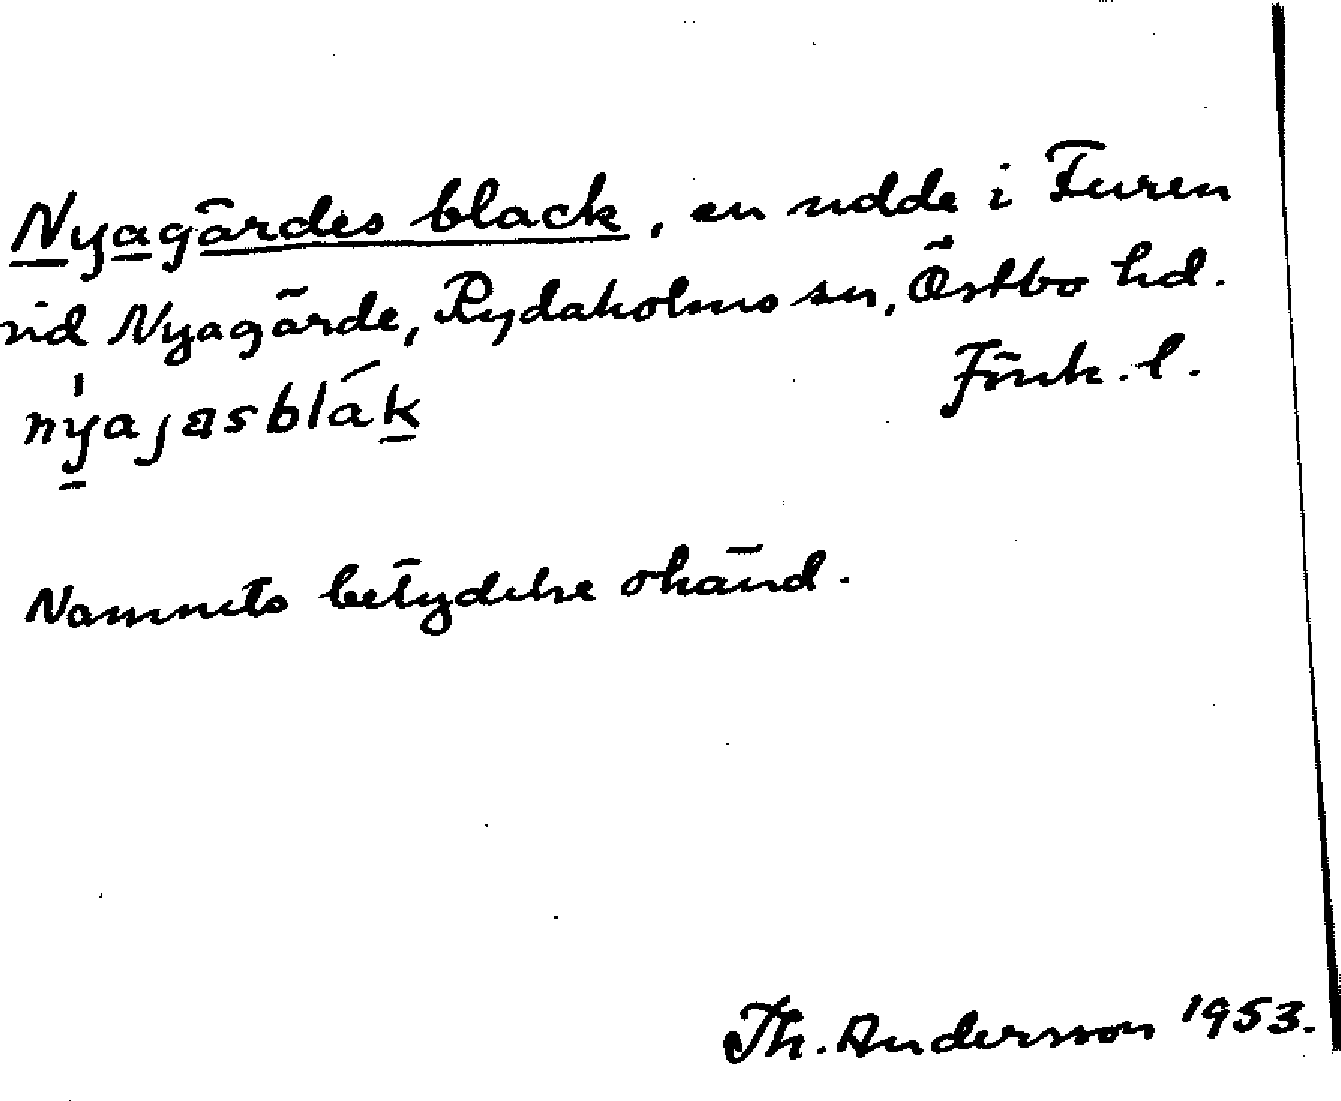 Nyagärdes black, en udde i Furen
vid Nyagärde, Rydaholms sn, Östbo hd.
Jönk. l.
nyajasblak
Namnets betydelse okänd.
Th. Andersson 1953.